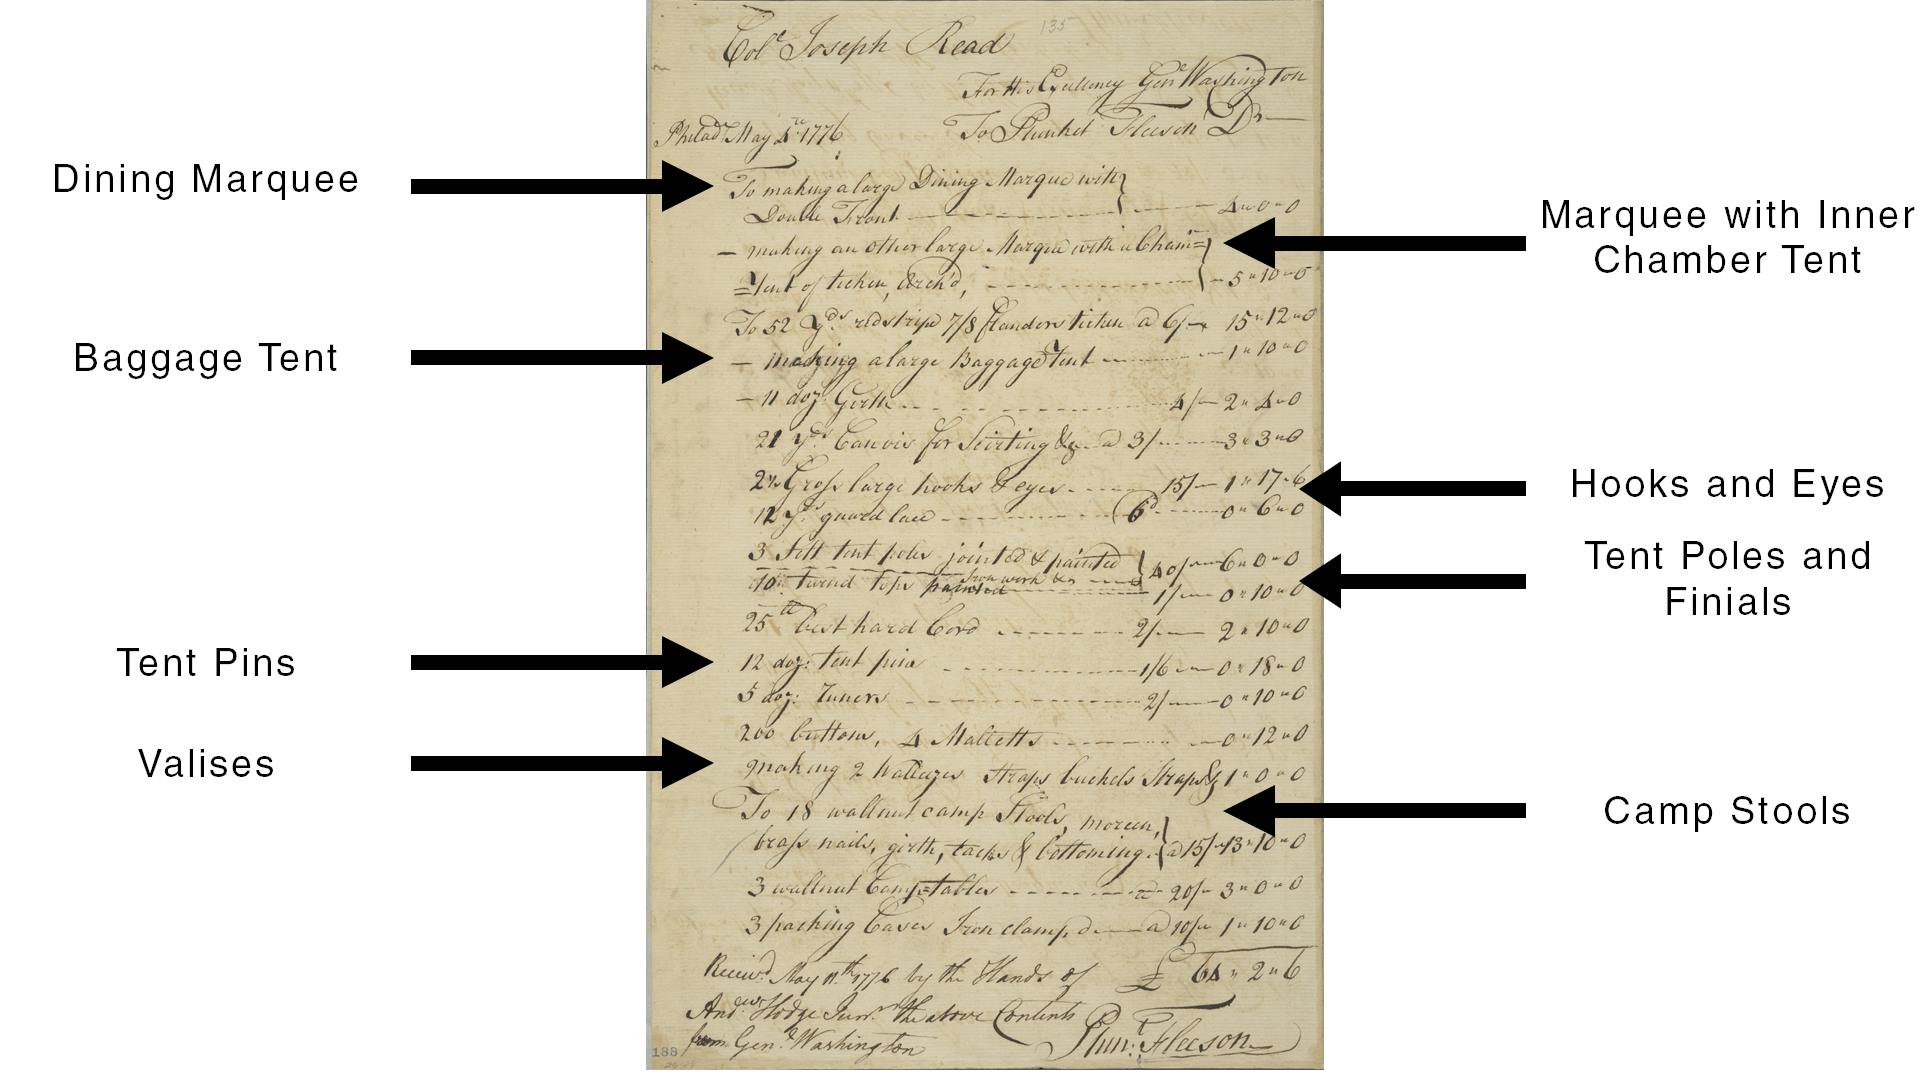 135
Colo Joseph Read
For His Excellency Genl Washington
To Plunket Fleeson Dr
Philada May 4th 1776
Dining Marquee
To making a large Dining Marque with
Double Front 4" 0" 0
Marquee with Inner
Chamber Tent
— making an other large Marque with a Cham=
=Tent of ticken, Arch'd, 5" 10" 0
To 52 yds red stripe 7/8 flanders ticken @ 6/ 15" 12" 0
Baggage Tent
— making a large Baggage Tent 1" 10" 0
— 11 doz: Girth 4/ 2" 4" 0
21 yds Canvis for Scirting & @ 3/ 3" 3" 0
Hooks and Eyes
2½ Gross large hooks & eyes 15/ 1" 17" 6
12 yds guard lace 6d 0" 6" 0
Tent Poles and
Finials
3 Sett tent poles jointed & painted
Iron work &c 40/ 6" 0" 0
10 turned tops painted 1/ 0" 10" 0
25 lb best hard Cord 2/ 2" 10" 0
Tent Pins
12 doz: tent pins 1/6 0" 18" 0
5 doz: 2/ 0" 10" 0
200 buttons, 4 Malletts 0" 12" 0
Valises
making 2 Straps buckels Straps & 1" 0" 0
Camp Stools
To 18 wallnut camp Stools, moreen,
brass nails, girth, tacks & bottoming. @ 15/ 13" 10" 0
3 wallnut Camp=tables @ 20/ 3" 0" 0
3 packing Cases Iron clamp'd @ 10/ 1" 10" 0
Receiv'd May 11th 1776 by the Hands of £ 64" 2" 6
Andew Hodge Junr the above Contents
from Genl Washington Plunt Fleeson
188